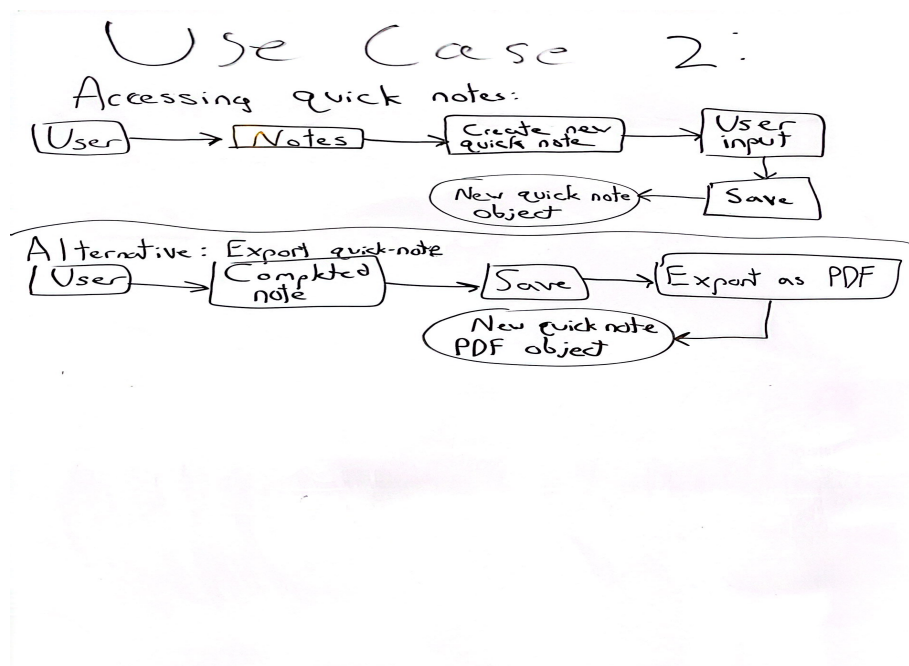 Use Case 2:
Accessing quick notes:
User
Notes
Create new
quick note
User
input
Save
New quick note
object
Alternative: Export quick-note
User
Completed
note
Save
Export as PDF
New quick note
PDF object